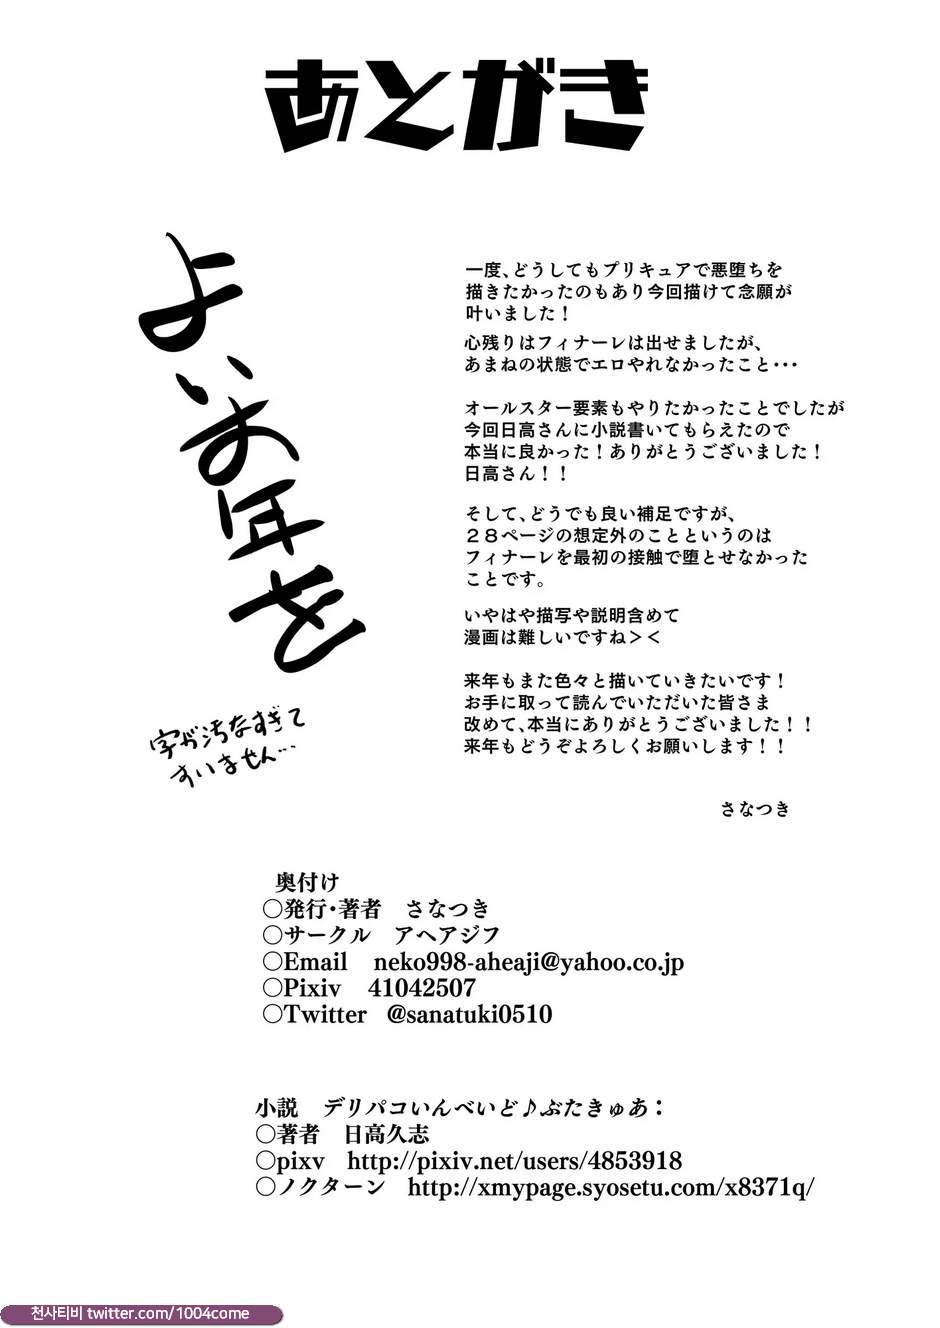 あとがき
よいお年を
字が汚なすぎて
すいません…
一度、どうしてもプリキュアで悪堕ちを
描きたかったのもあり今回描けて念願が
叶いました！
心残りはフィナーレは出せましたが、
あまねの状態でエロやれなかったこと・・・
オールスター要素もやりたかったことでしたが
今回日高さんに小説書いてもらえたので
本当に良かった！ありがとうございました！
日高さん！！
そして、どうでも良い補足ですが、
２８ページの想定外のことというのは
フィナーレを最初の接触で堕とせなかった
ことです。
いやはや描写や説明含めて
漫画は難しいですね＞＜
来年もまた色々と描いていきたいです！
お手に取って読んでいただいた皆さま
改めて、本当にありがとうございました！！
来年もどうぞよろしくお願いします！！
さなつき
奥付け
〇発行・著者　さなつき
〇サークル　アヘアジフ
〇Email　neko998-aheaji@yahoo.co.jp
〇Pixiv　41042507
〇Twitter　@sanatuki0510
小説　デリパコいんべいど♪ぶたきゅあ：
〇著者　日高久志
〇pixv　http://pixiv.net/users/4853918
〇ノクターン　http://xmypage.syosetu.com/x8371q/
천사티비 twitter.com/1004come